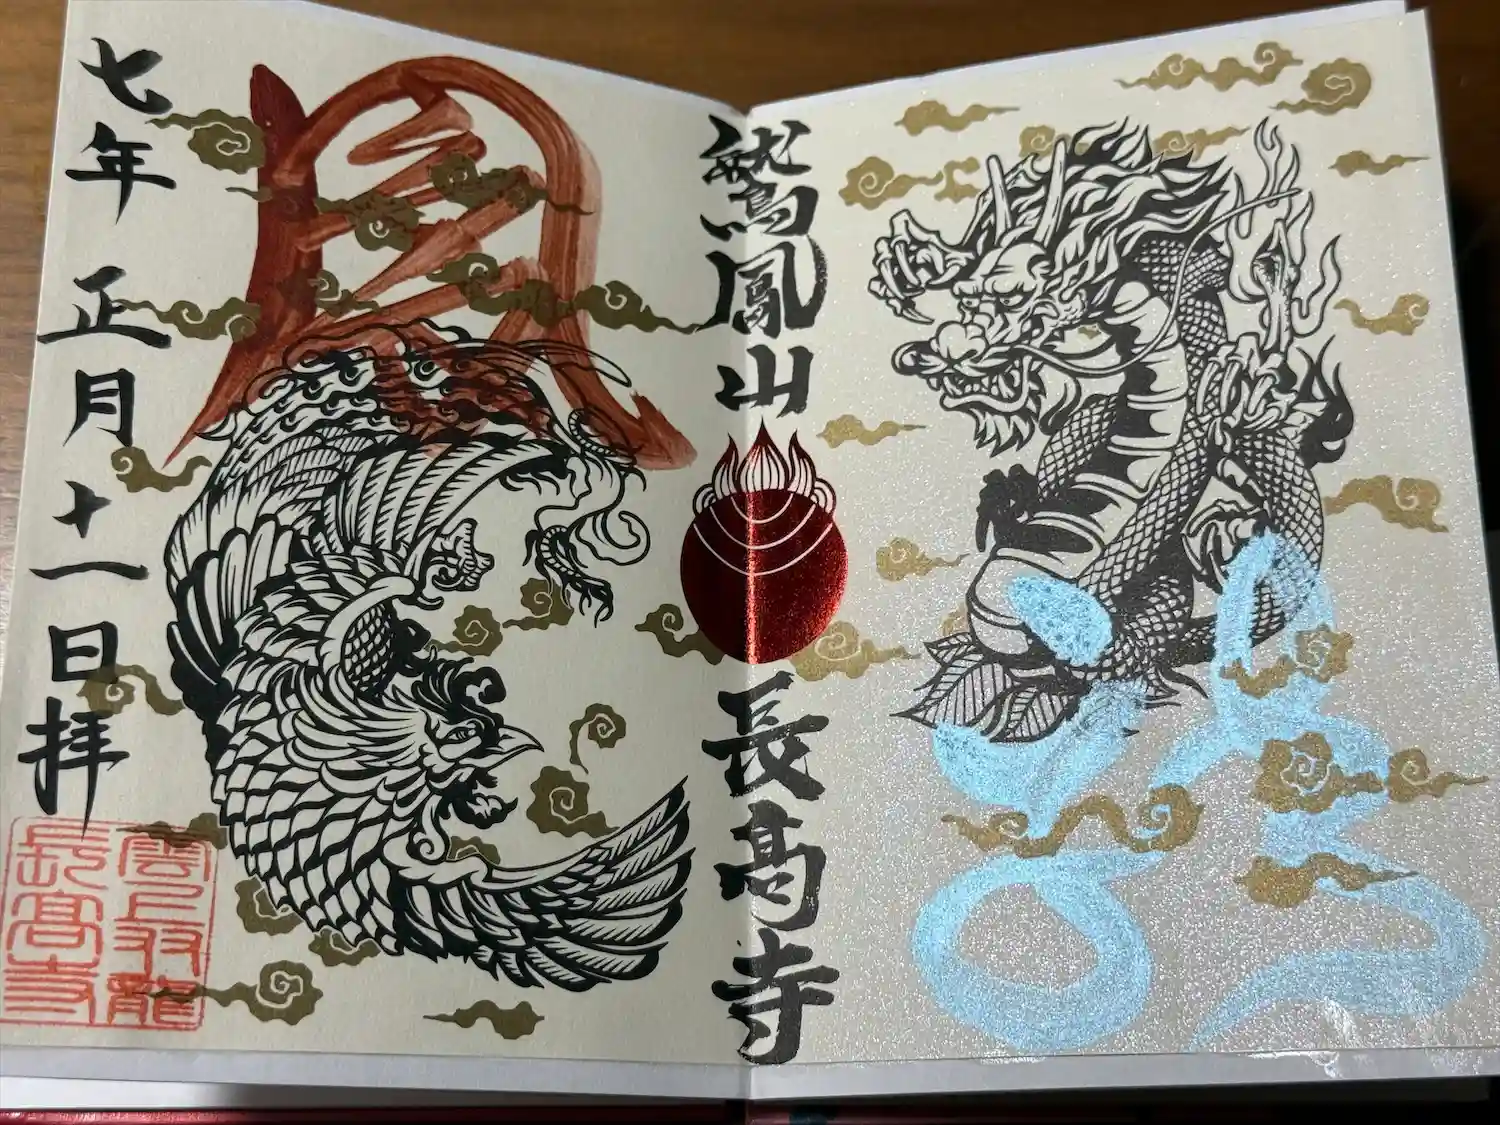 龍
鷲鳳山 長髙寺
鳳
七年 正月 十一日 拝
長髙寺